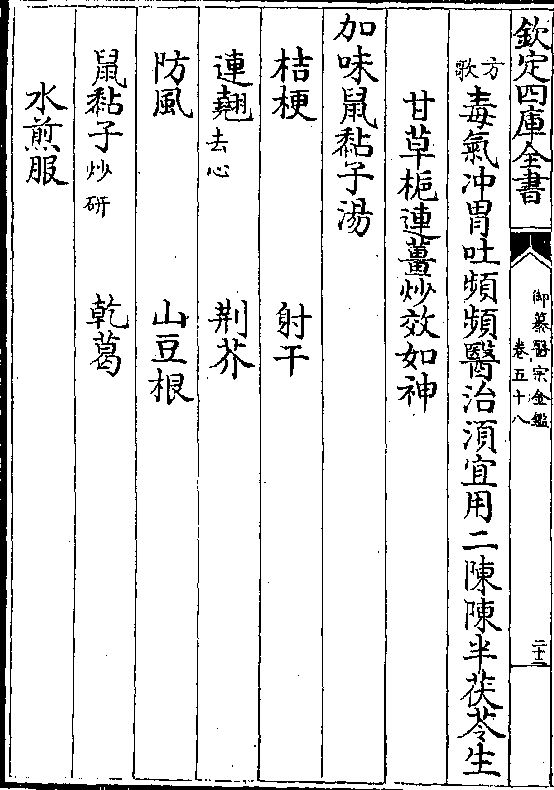 欽定四庫全書
御纂醫宗金鑑
卷五十八
二十二
方歌
毒氣冲胃吐頻頻醫治湏宜用二陳陳半茯苓生
甘草梔連薑炒效如神
加味鼠黏子湯
桔梗 射干
連翹去心 荆芥
防風 山豆根
鼠黏子炒研 乾葛
水煎服